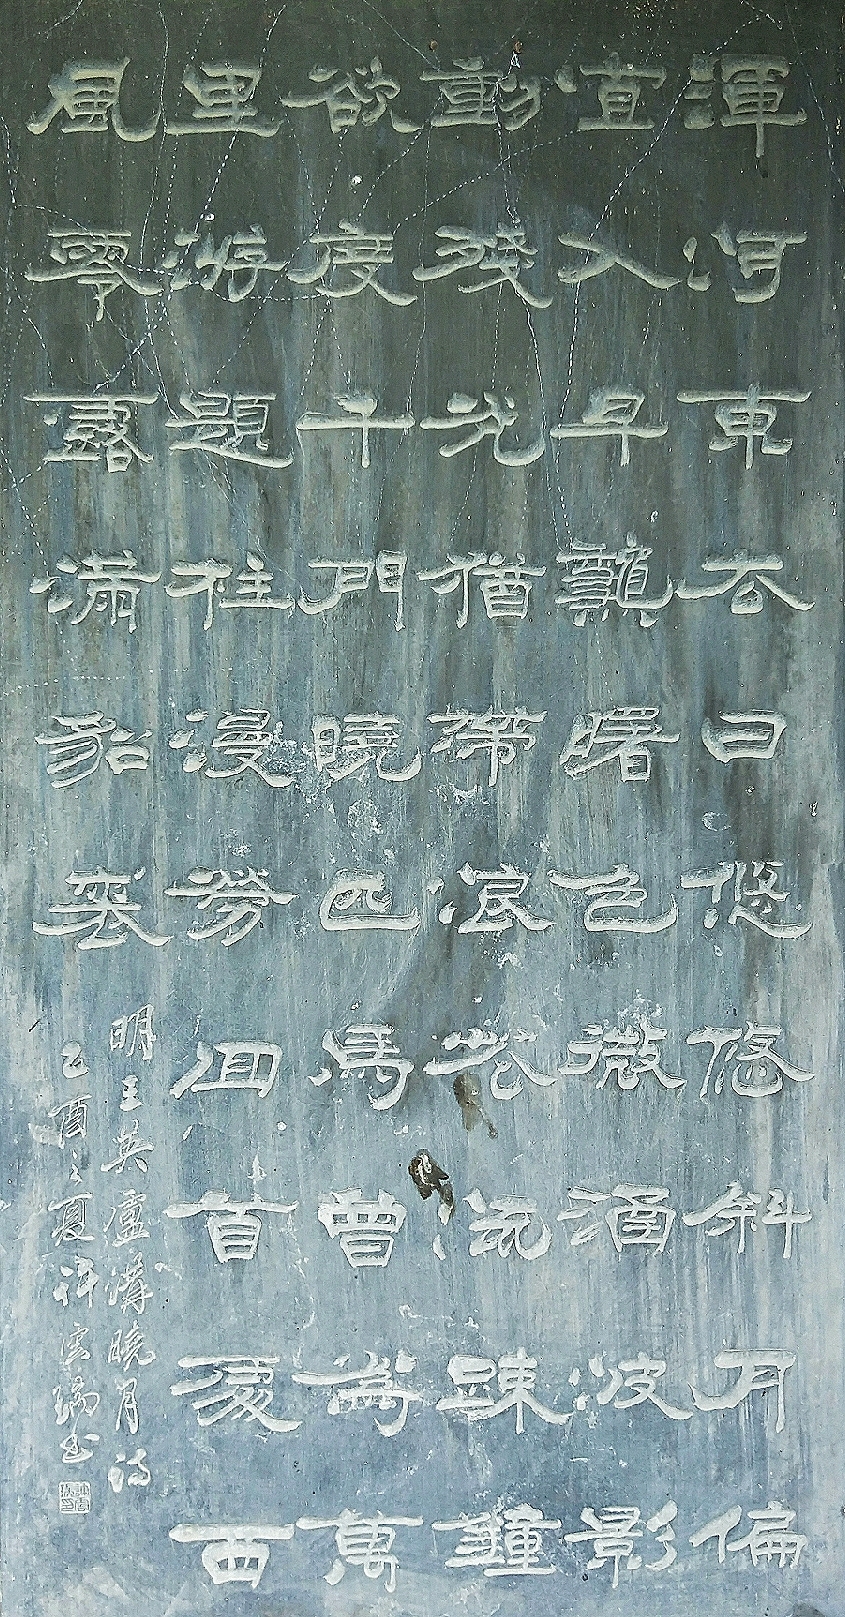 渾河東去日悠悠斜月偏
宜入早龝曙色微涵波影
動殘光猶帶浪花流踈鐘
欲度千門曉匹馬曾為萬
里游題柱漫勞回首處西
風零露滿貂裘
明王英盧溝曉月詩
乙酉之夏許雲瑞書